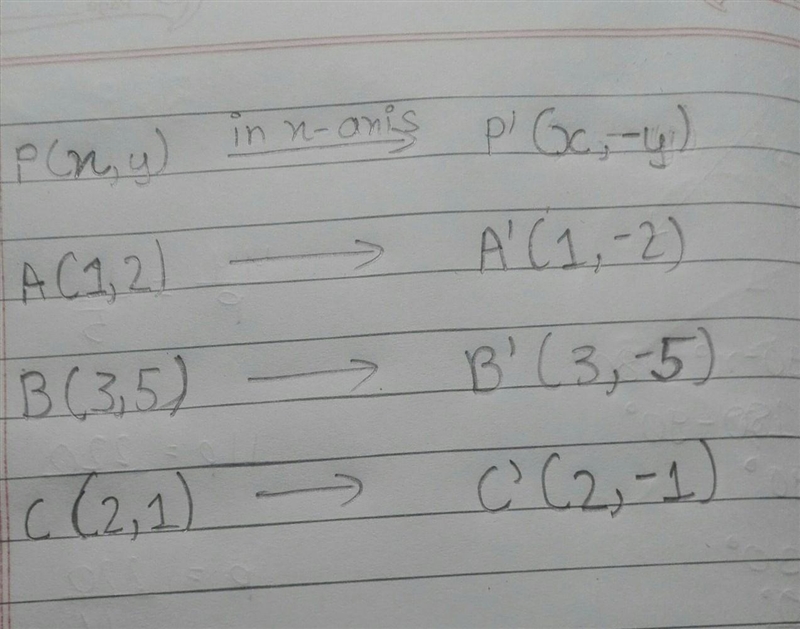 P(x,y) in x-axis → P'(x,-y)
A(1,2) → A'(1,-2)
B(3,5) → B'(3,-5)
C(2,1) → C'(2,-1)